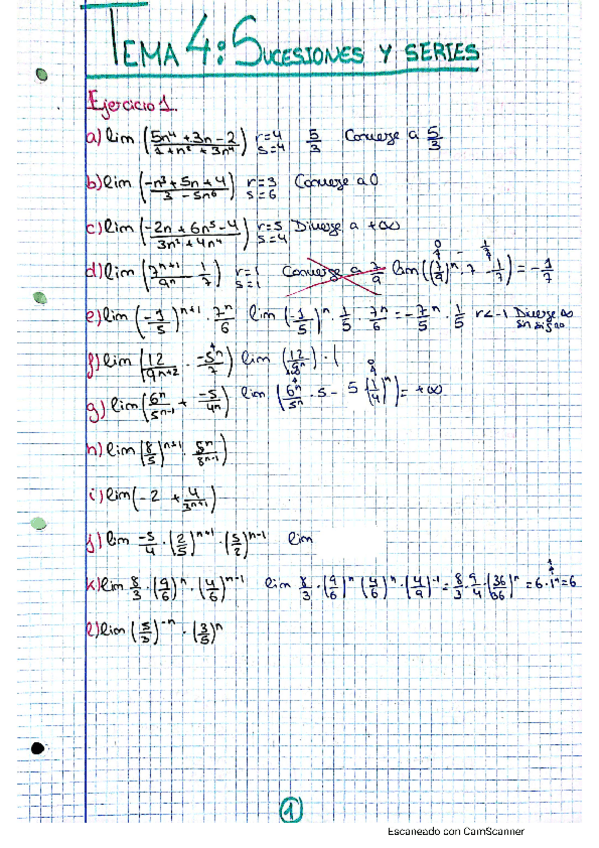 TEMA 4: SUCESIONES Y SERIES
Ejercicio 1.
a) lim (5n⁴ + 3n - 2 / 1 + n² + 3n⁴) r=4 s=4 5/3 Converge a 5/3
b) lim (-n³ + 5n + 4 / 3 - 5n⁶) r=3 s=6 Converge a 0
c) lim (-2n + 6n⁵ - 4 / 3n² + 4n⁴) r=5 s=4 Diverge a +∞
d) lim (7ⁿ⁺¹ / 9ⁿ - 1/7) r=1 s=1 Converge a 7/9 lim ((7/9)ⁿ · 7 - 1/7) = -1/7
e) lim (-1/5)ⁿ⁺¹ · 7ⁿ/6 lim (-1/5)ⁿ · 1/5 · 7ⁿ/6 = -7ⁿ/5 · 1/5 r<-1 Diverge ∞ sin signo
f) lim (12 / 9ⁿ⁺² · -5ⁿ/7) lim (12/9ⁿ) · (
g) lim (6ⁿ/5ⁿ⁻¹ + -5/4ⁿ) lim (6ⁿ/5ⁿ · 5 - 5 (1/4)ⁿ) = +∞
h) lim (8/5)ⁿ⁺¹ · 5ⁿ/8ⁿ⁻¹)
i) lim (-2 + 4/3ⁿ⁺¹)
j) lim -5/4 · (2/5)ⁿ⁺¹ · (5/2)ⁿ⁻¹ lim
k) lim 8/3 · (9/6)ⁿ · (4/6)ⁿ⁻¹ lim 8/3 · (9/6)ⁿ (4/6)ⁿ · (4/9)⁻¹ = 8/3 · 9/4 · (36/36)ⁿ = 6 · 1ⁿ = 6
l) lim (5/3)⁻ⁿ · (3/5)ⁿ
1
Escaneado con CamScanner